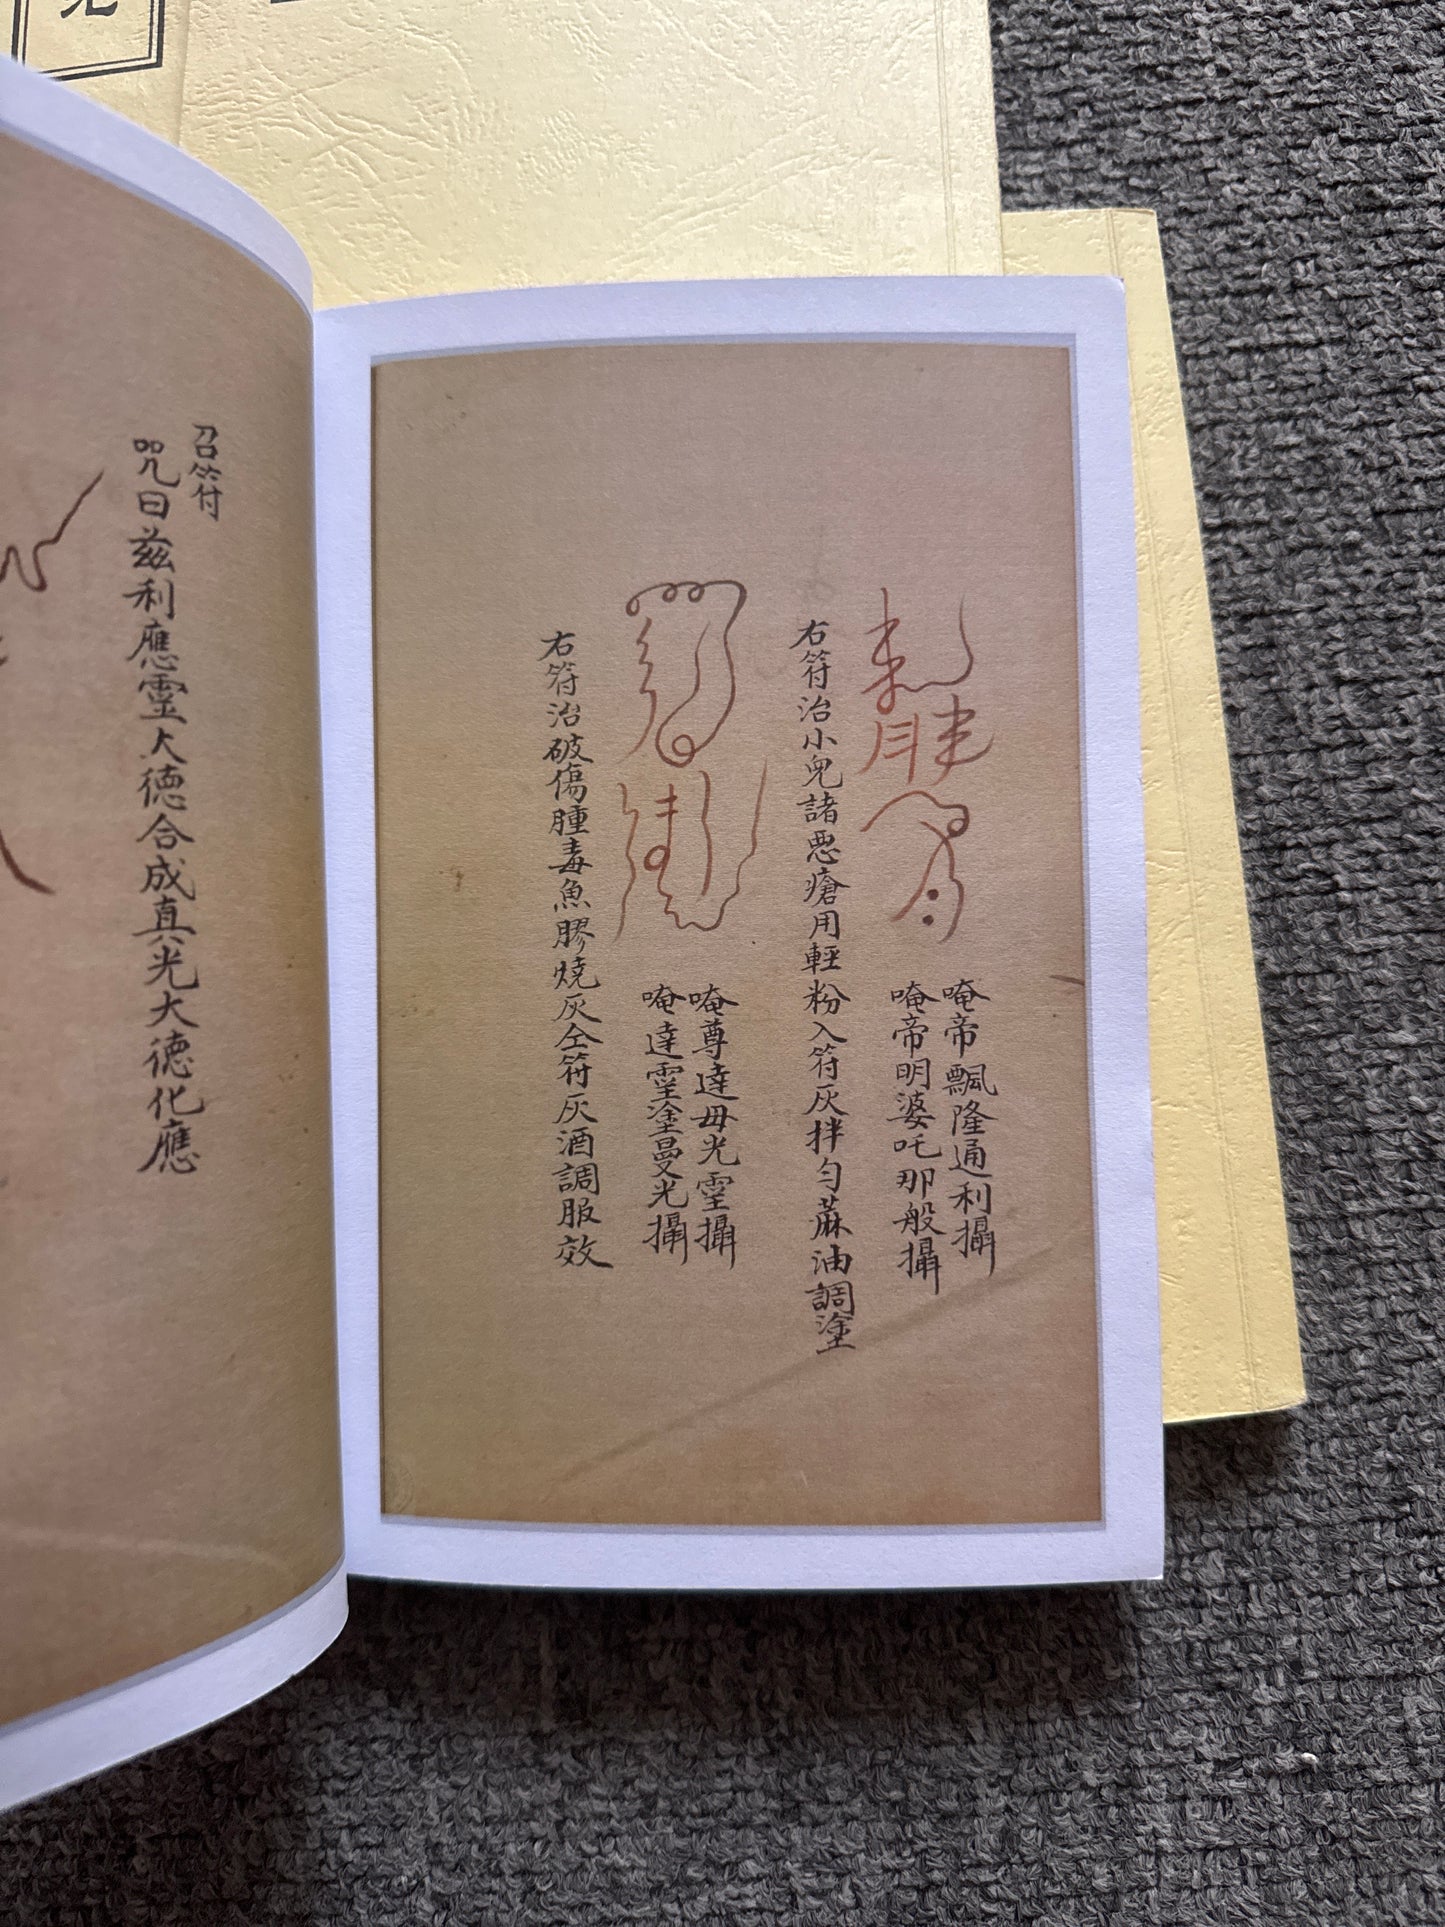 唵帝飄隆通利攝
唵帝明婆吒那般攝
右符治小兒諸惡瘡用輕粉入符灰拌勻蔴油調塗
唵尊達毋光霊攝
唵達霊塗曼光攝
右符治破傷腫毒魚膠燒灰仝符灰酒調服效
召符
咒曰茲利應霊大德合成真光大德化應